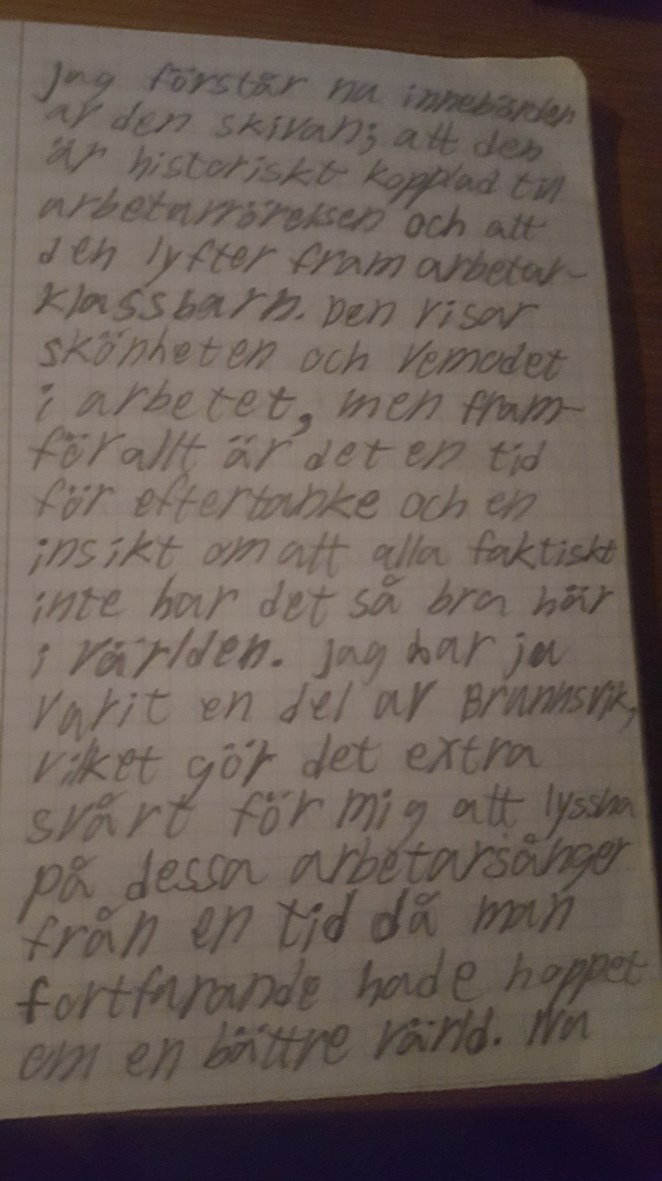 Jag förstår nu innebörden
av den skivan; att den
är historiskt kopplad till
arbetarrörelsen och att
den lyfter fram arbetar-
klassbarn. Den visar
skönheten och vemodet
i arbetet, men fram-
för allt är det en tid
för eftertanke och en
insikt om att alla faktiskt
inte har det så bra här
i världen. Jag har ju
varit en del av Brunnsvik,
vilket gör det extra
svårt för mig att lyssna
på dessa arbetarsånger
från en tid då man
fortfarande hade hoppet
om en bättre värld. Nu